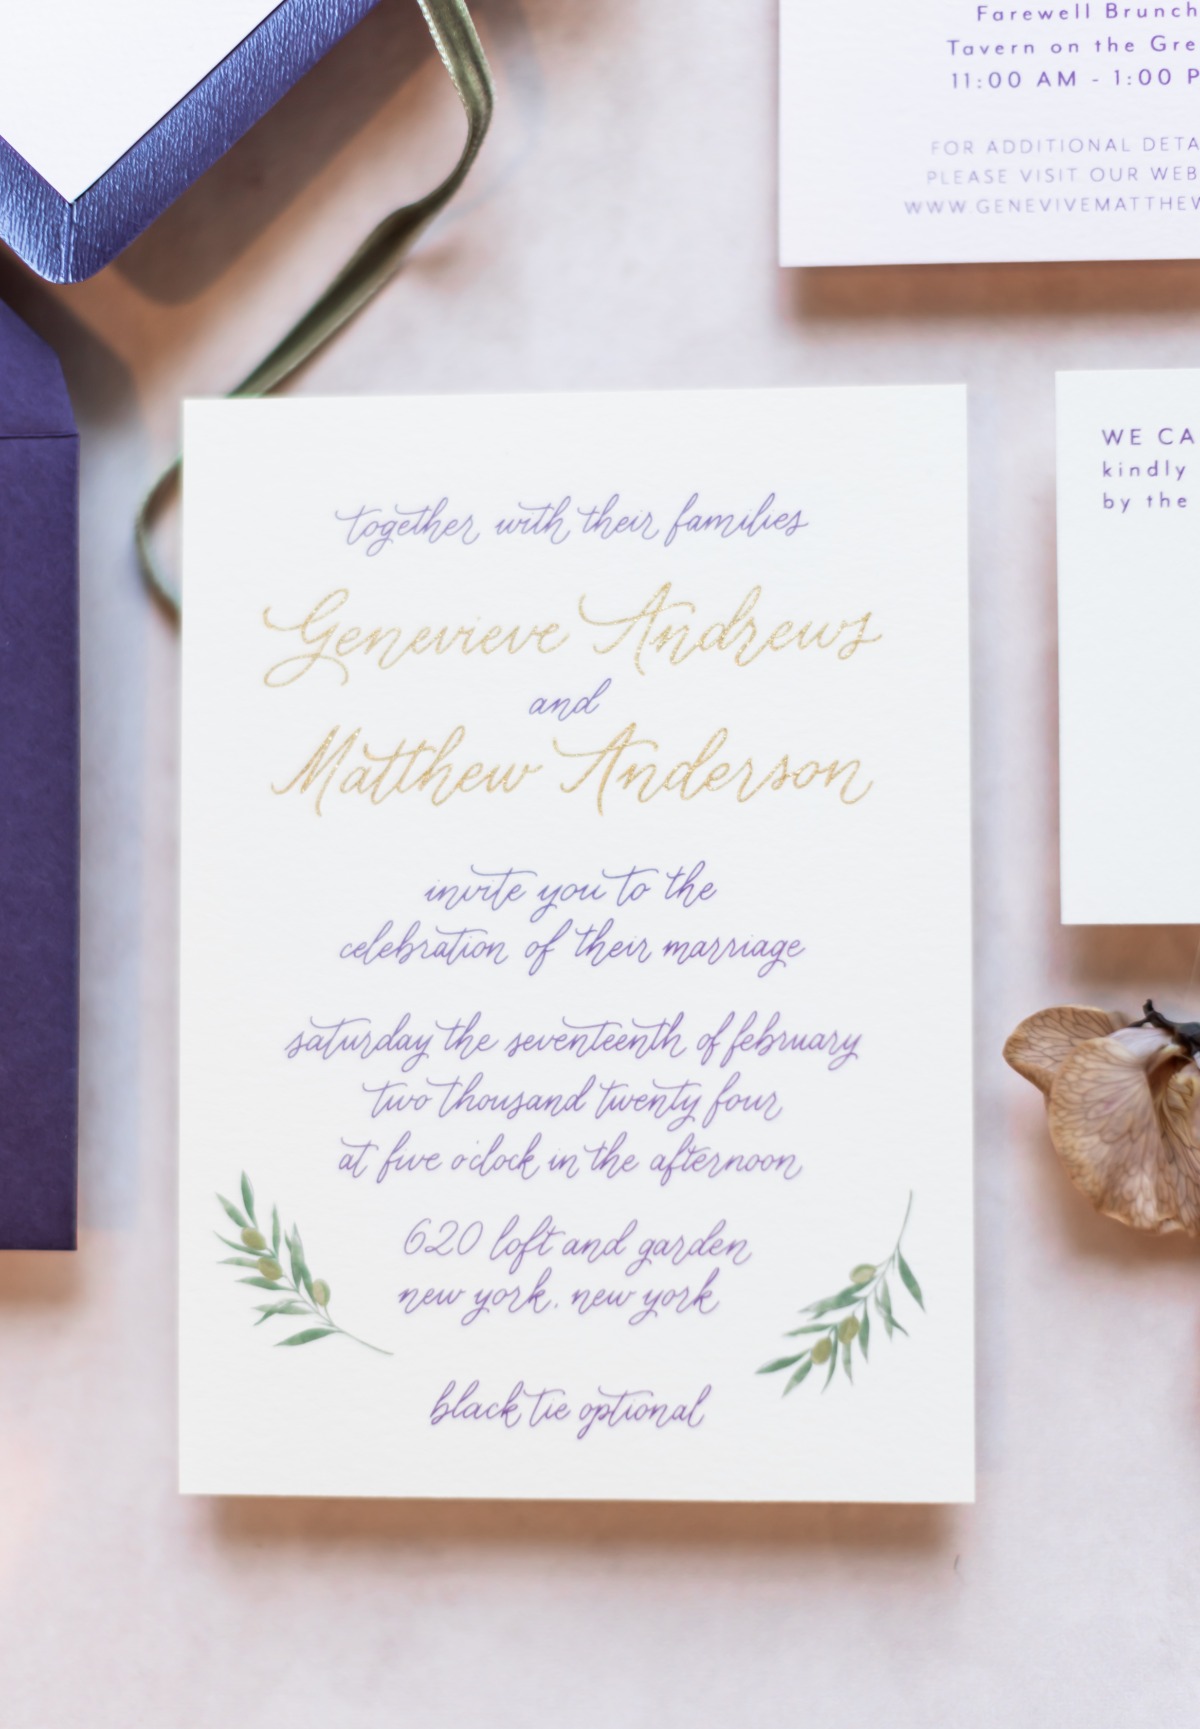 Farewell Brunch
Tavern on the Gre
11:00 AM - 1:00 P
FOR ADDITIONAL DETA
PLEASE VISIT OUR WEB
WWW.GENEVIVEMATTHEW
together with their families
Genevieve Andrews
and
Matthew Anderson
invite you to the
celebration of their marriage
saturday the seventeenth of february
two thousand twenty four
at five o'clock in the afternoon
620 loft and garden
new york, new york
black tie optional
WE CA
kindly
by the